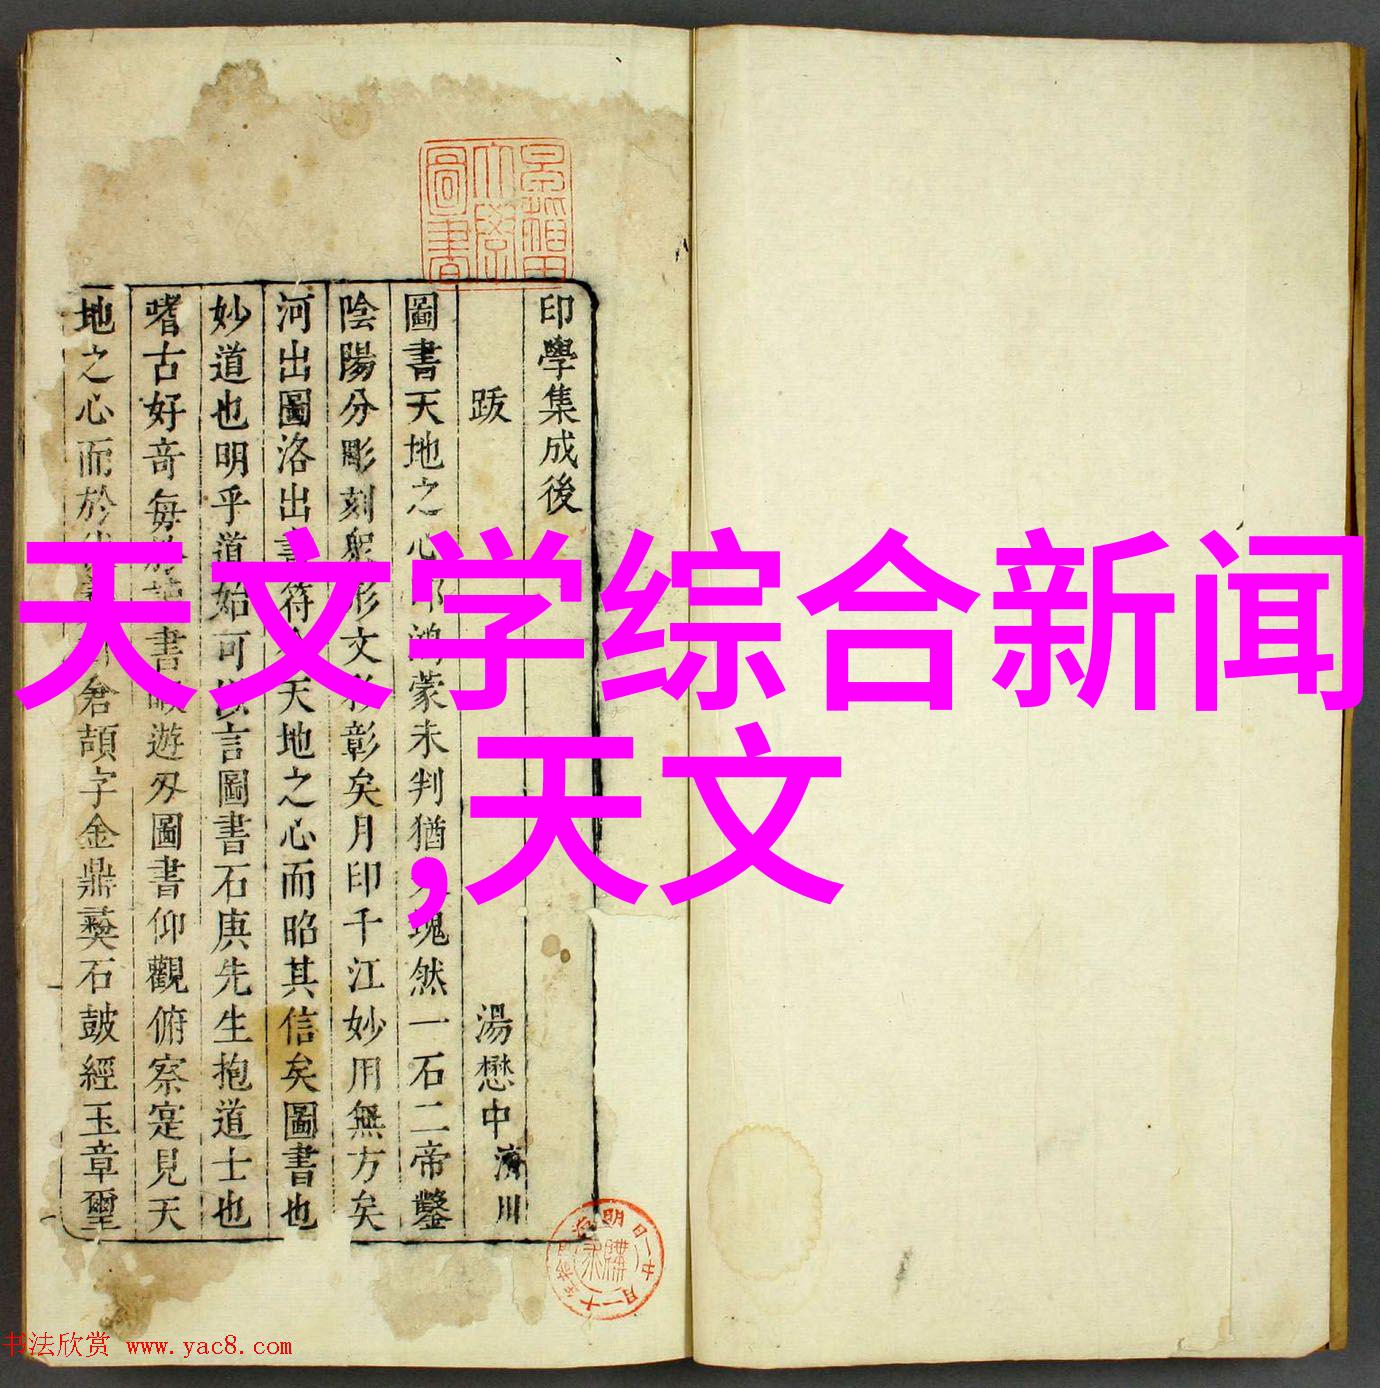 天文学综合新闻
,天文
印學集成後
跋 湯懋中濟川
圖書天地之心 鴻蒙未判猶 塊然一石二帝鑿
陰陽分彫刻 形文 彰矣月印千江妙用無方矣
河出圖洛出書符 天地之心而昭其信矣圖書也
妙道也明乎道始可以言圖書石庚先生抱道士也
嗜古好竒每 書 遊 圖書仰觀俯察寔見天
地之心而於 倉頡字金鼎彝石鼓經玉章璽
書法欣赏 www.yac8.com